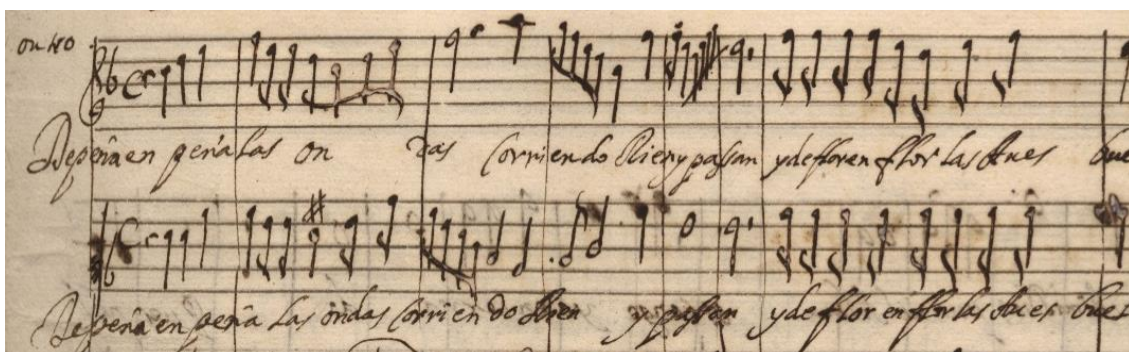 otro
De peña en peña las on das corriendo Rien y pasan y de flor en flor las Aues bue
De peña en peña las ondas corrien do Rien y pasan y de flor en flor las Aues buel